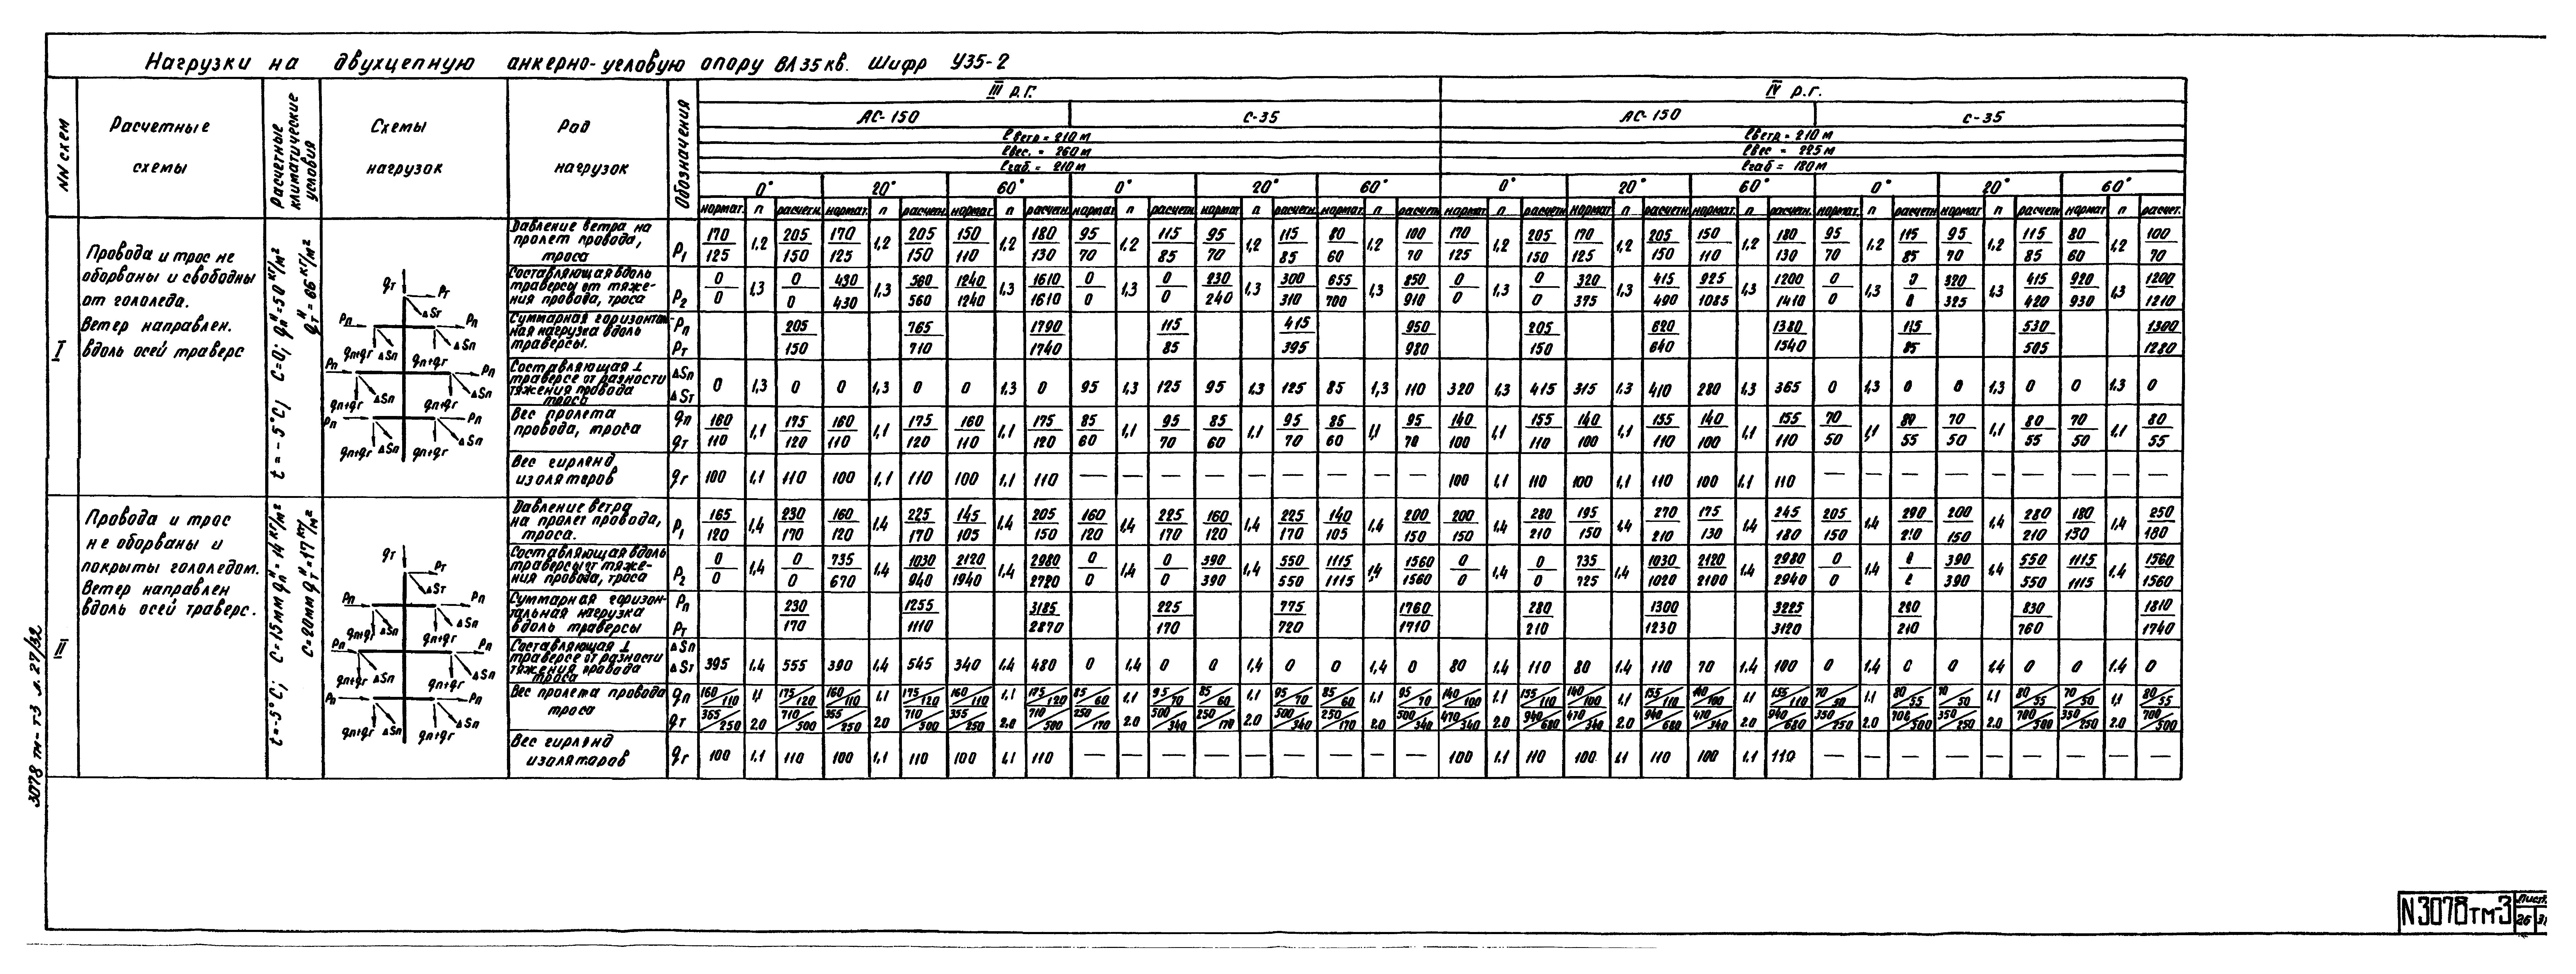 Нагрузки на двухцепную анкерно-угловую опору ВЛ 35 кв. Шифр У35-2
NN схем
Расчетные схемы
Расчетные климатические условия
Схемы нагрузок
Род нагрузок
Обозначения
III р.г. IV р.г.
АС-150 С-35 АС-150 С-35
ℓветр = 210 м ℓветр = 210 м
ℓвес. = 260 м ℓвес = 225 м
ℓгаб. = 210 м ℓгаб = 180 м
0° 20° 60° 0° 20° 60° 0° 20° 60° 0° 20° 60°
нормат. п расчетн. нормат. п расчетн. нормат п расчетн нормат п расчетн. нормат п расчетн. нормат п расчетн. нормат п расчетн нормат п расчетн. нормат. п расчетн. нормат. п расчетн нормат п расчетн нормат п расчет.
I
Провода и трос не
оборваны и свободны
от гололеда.
Ветер направлен.
вдоль осей траверс
t = - 5°С; С=0; qпᴴ=50 кг/м²
qтᴴ = 66 кг/м²
qт Pт ΔSт Pп Pп ΔSп qп+qг ΔSп qп+qг Pп Pп ΔSп ΔSп qп+qг qп+qг Pп Pп ΔSп ΔSп qп+qг qп+qг
Давление ветра на
пролет провода,
троса
P1 170/125 1,2 205/150 170/125 1,2 205/150 150/110 1,2 180/130 95/70 1,2 115/85 95/70 1,2 115/85 80/60 1,2 100/70 170/125 1,2 205/150 170/125 1,2 205/150 150/110 1,2 180/130 95/70 1,2 115/85 95/70 1,2 115/85 80/60 1,2 100/70
Составляющая вдоль
траверсы от тяже-
ния провода, троса
P2 0/0 1,3 0/0 430/430 1,3 560/560 1240/1240 1,3 1610/1610 0/0 1,3 0/0 230/240 1,3 300/310 655/700 1,3 850/910 0/0 1,3 0/0 320/375 1,3 415/490 925/1085 1,3 1200/1410 0/0 1,3 0/0 320/325 1,3 415/420 920/930 1,3 1200/1210
Суммарная горизонталь-
ная нагрузка вдоль
траверсы.
Pп Pт 205/150 765/710 1790/1740 115/85 415/395 950/980 205/150 620/640 1380/1540 115/85 530/505 1300/1280
Составляющая ⊥
траверсе от разности
тяжения провода
троса
ΔSп ΔSт 0 1,3 0 0 1,3 0 0 1,3 0 95 1,3 125 95 1,3 125 85 1,3 110 320 1,3 415 315 1,3 410 280 1,3 365 0 1,3 0 0 1,3 0 0 1,3 0
Вес пролета
провода, троса
qп qт 160/110 1,1 175/120 160/110 1,1 175/120 160/110 1,1 175/120 85/60 1,1 95/70 85/60 1,1 95/70 85/60 1,1 95/70 140/100 1,1 155/110 140/100 1,1 155/110 140/100 1,1 155/110 70/50 1,1 80/55 70/50 1,1 80/55 70/50 1,1 80/55
Вес гирлянд
изоляторов
qг 100 1,1 110 100 1,1 110 100 1,1 110 — — — — — — — — — 100 1,1 110 100 1,1 110 100 1,1 110 — — — — — — — — —
II
Провода и трос
не оборваны и
покрыты гололедом.
Ветер направлен
вдоль осей траверс.
t=-5°С; С=15мм qпᴴ=14 кг/м²
С=20мм qтᴴ=17 кг/м²
qт Pт ΔSт Pп Pп ΔSп qп+qг ΔSп qп+qг Pп Pп ΔSп ΔSп qп+qг qп+qг Pп Pп ΔSп ΔSп qп+qг qп+qг
Давление ветра
на пролет провода,
троса.
P1 165/120 1,4 230/170 160/120 1,4 225/170 145/105 1,4 205/150 160/120 1,4 225/170 160/120 1,4 225/170 140/105 1,4 200/150 200/150 1,4 280/210 195/150 1,4 270/210 175/130 1,4 245/180 205/150 1,4 290/210 200/150 1,4 280/210 180/130 1,4 250/180
Составляющая вдоль
траверсы от тяже-
ния провода, троса
P2 0/0 1,4 0/0 735/670 1,4 1030/940 2120/1940 1,4 2980/2720 0/0 1,4 0/0 390/390 1,4 550/550 1115/1115 1,4 1560/1560 0/0 1,4 0/0 735/725 1,4 1030/1020 2120/2100 1,4 2980/2940 0/0 1,4 0/0 390/390 1,4 550/550 1115/1115 1,4 1560/1560
Суммарная горизон-
тальная нагрузка
вдоль траверсы
Pп Pт 230/170 1255/1110 3185/2870 225/170 775/720 1760/1710 280/210 1300/1230 3225/3120 290/210 830/760 1810/1740
Составляющая ⊥
траверсе от разности
тяжения провода
троса
ΔSп ΔSт 395 1,4 555 390 1,4 545 340 1,4 480 0 1,4 0 0 1,4 0 0 1,4 0 80 1,4 110 80 1,4 110 70 1,4 100 0 1,4 0 0 1,4 0 0 1,4 0
Вес пролета провода
троса
qп 160/110 1,1 175/120 160/110 1,1 175/120 160/110 1,1 175/120 85/60 1,1 95/70 85/60 1,1 95/70 85/60 1,1 95/70 140/100 1,1 155/110 140/100 1,1 155/110 140/100 1,1 155/110 70/50 1,1 80/55 70/50 1,1 80/55 70/50 1,1 80/55
qт 365/250 2.0 710/500 355/250 2.0 710/500 355/250 2.0 710/500 250/170 2.0 500/340 250/170 2.0 500/340 250/170 2.0 500/340 470/340 2.0 940/680 470/340 2.0 940/680 470/340 2.0 940/680 350/250 2.0 700/500 350/250 2.0 700/500 350/250 2.0 700/500
Вес гирлянд
изоляторов
qг 100 1,1 110 100 1,1 110 100 1,1 110 — — — — — — — — — 100 1.1 110 100 1.1 110 100 1.1 110 — — — — — — — — —
3078 тм-т3 л. 27/32
N3078тм-3
Лист
26